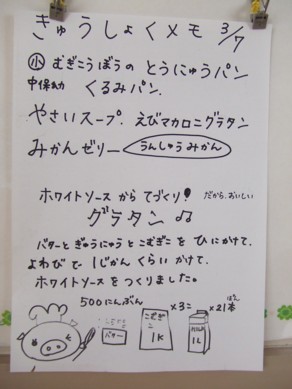 きゅうしょくメモ 3/7
小 むぎこうぼうの とうにゅうパン
中保幼 くるみパン.
やさいスープ. えびマカロニグラタン
みかんゼリー うんしゅうみかん
ホワイトソースから てづくり! だから、おいしい
グラタン♫
バターと ぎゅうにゅうと こむぎこを ひにかけて、
よわびで 1じかんくらい かけて、
ホワイトソースをつくりました。
500にんぶん
バター
こむぎこ
1K
×3こ
1L
×21本
ぽん